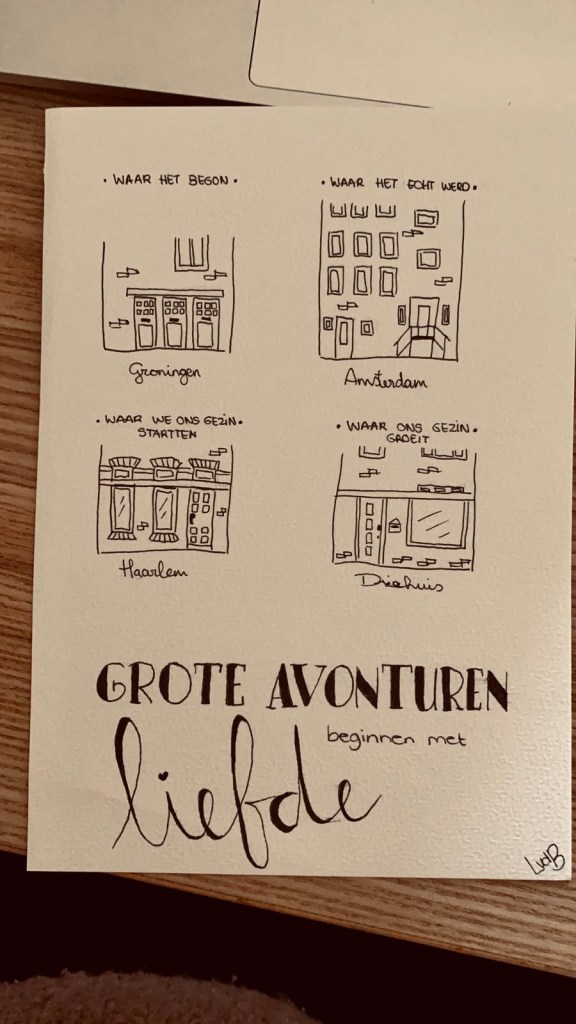 • WAAR HET BEGON •
Groningen
• WAAR HET ECHT WERD •
Amsterdam
• WAAR WE ONS GEZIN •
STARTTEN
Haarlem
• WAAR ONS GEZIN •
GROEIT
Driehuis
GROTE AVONTUREN
beginnen met
liefde
LvdB